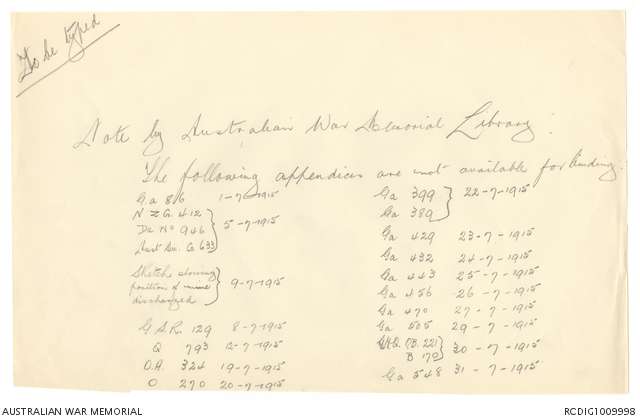 To be typed
Note by Australian War Memorial Library:
The following appendices are not available for binding.
G.a 86 1-7-1915
N Z G. 412
De No 946 } 5-7-1915
Aust Div. G 633
Sketch showing
position of mine } 9-7-1915
discharged
G.S.R. 129 8-7-1915
Q 793 12-7-1915
D.A. 324 19-7-1915
O 270 20-7-1915
Ga 399 } 22-7-1915
Ga 389
Ga 429 23-7-1915
Ga 432 24-7-1915
Ga 443 25-7-1915
Ga 456 26-7-1915
Ga 470 27-7-1915
Ga 505 29-7-1915
G.H.Q. (B. 221 } 30-7-1915
B 172
Ga 548 31-7-1915
AUSTRALIAN WAR MEMORIAL
RCDIG1009998